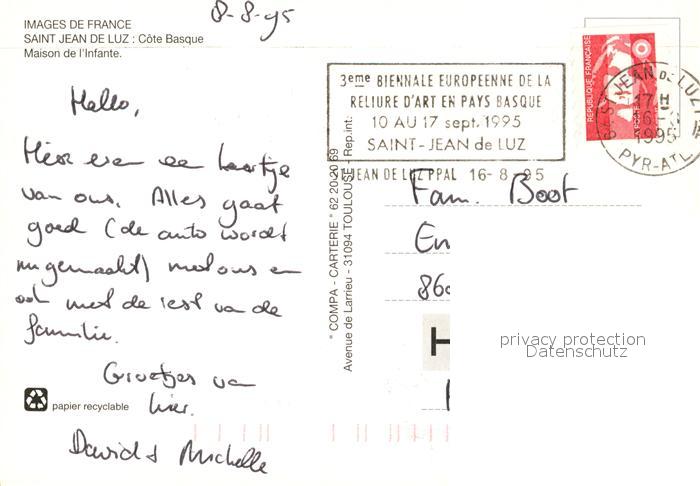 IMAGES DE FRANCE
SAINT JEAN DE LUZ : Côte Basque
Maison de l'Infante.
8-8-95
Hallo,
Hier even een kaartje
van ons. Alles gaat
goed (de auto wordt
nu gemaakt) met ons en
ook met de rest van de
familie.
Groetjes van
hier.
David & Michelle
papier recyclable
" COMPA - CARTERIE " 62 20 20 69
Avenue de Larrieu - 31094 TOULOUSE - Rep.int:
3eme BIENNALE EUROPEENNE DE LA
RELIURE D'ART EN PAYS BASQUE
10 AU 17 sept. 1995
SAINT-JEAN de LUZ
JEAN DE LUZ PPAL 16-8-95
REPUBLIQUE FRANÇAISE
ST JEAN DE LUZ
17 H
1995
PYR-ATL
Fam. Boot
En
860
H
privacy protection
Datenschutz